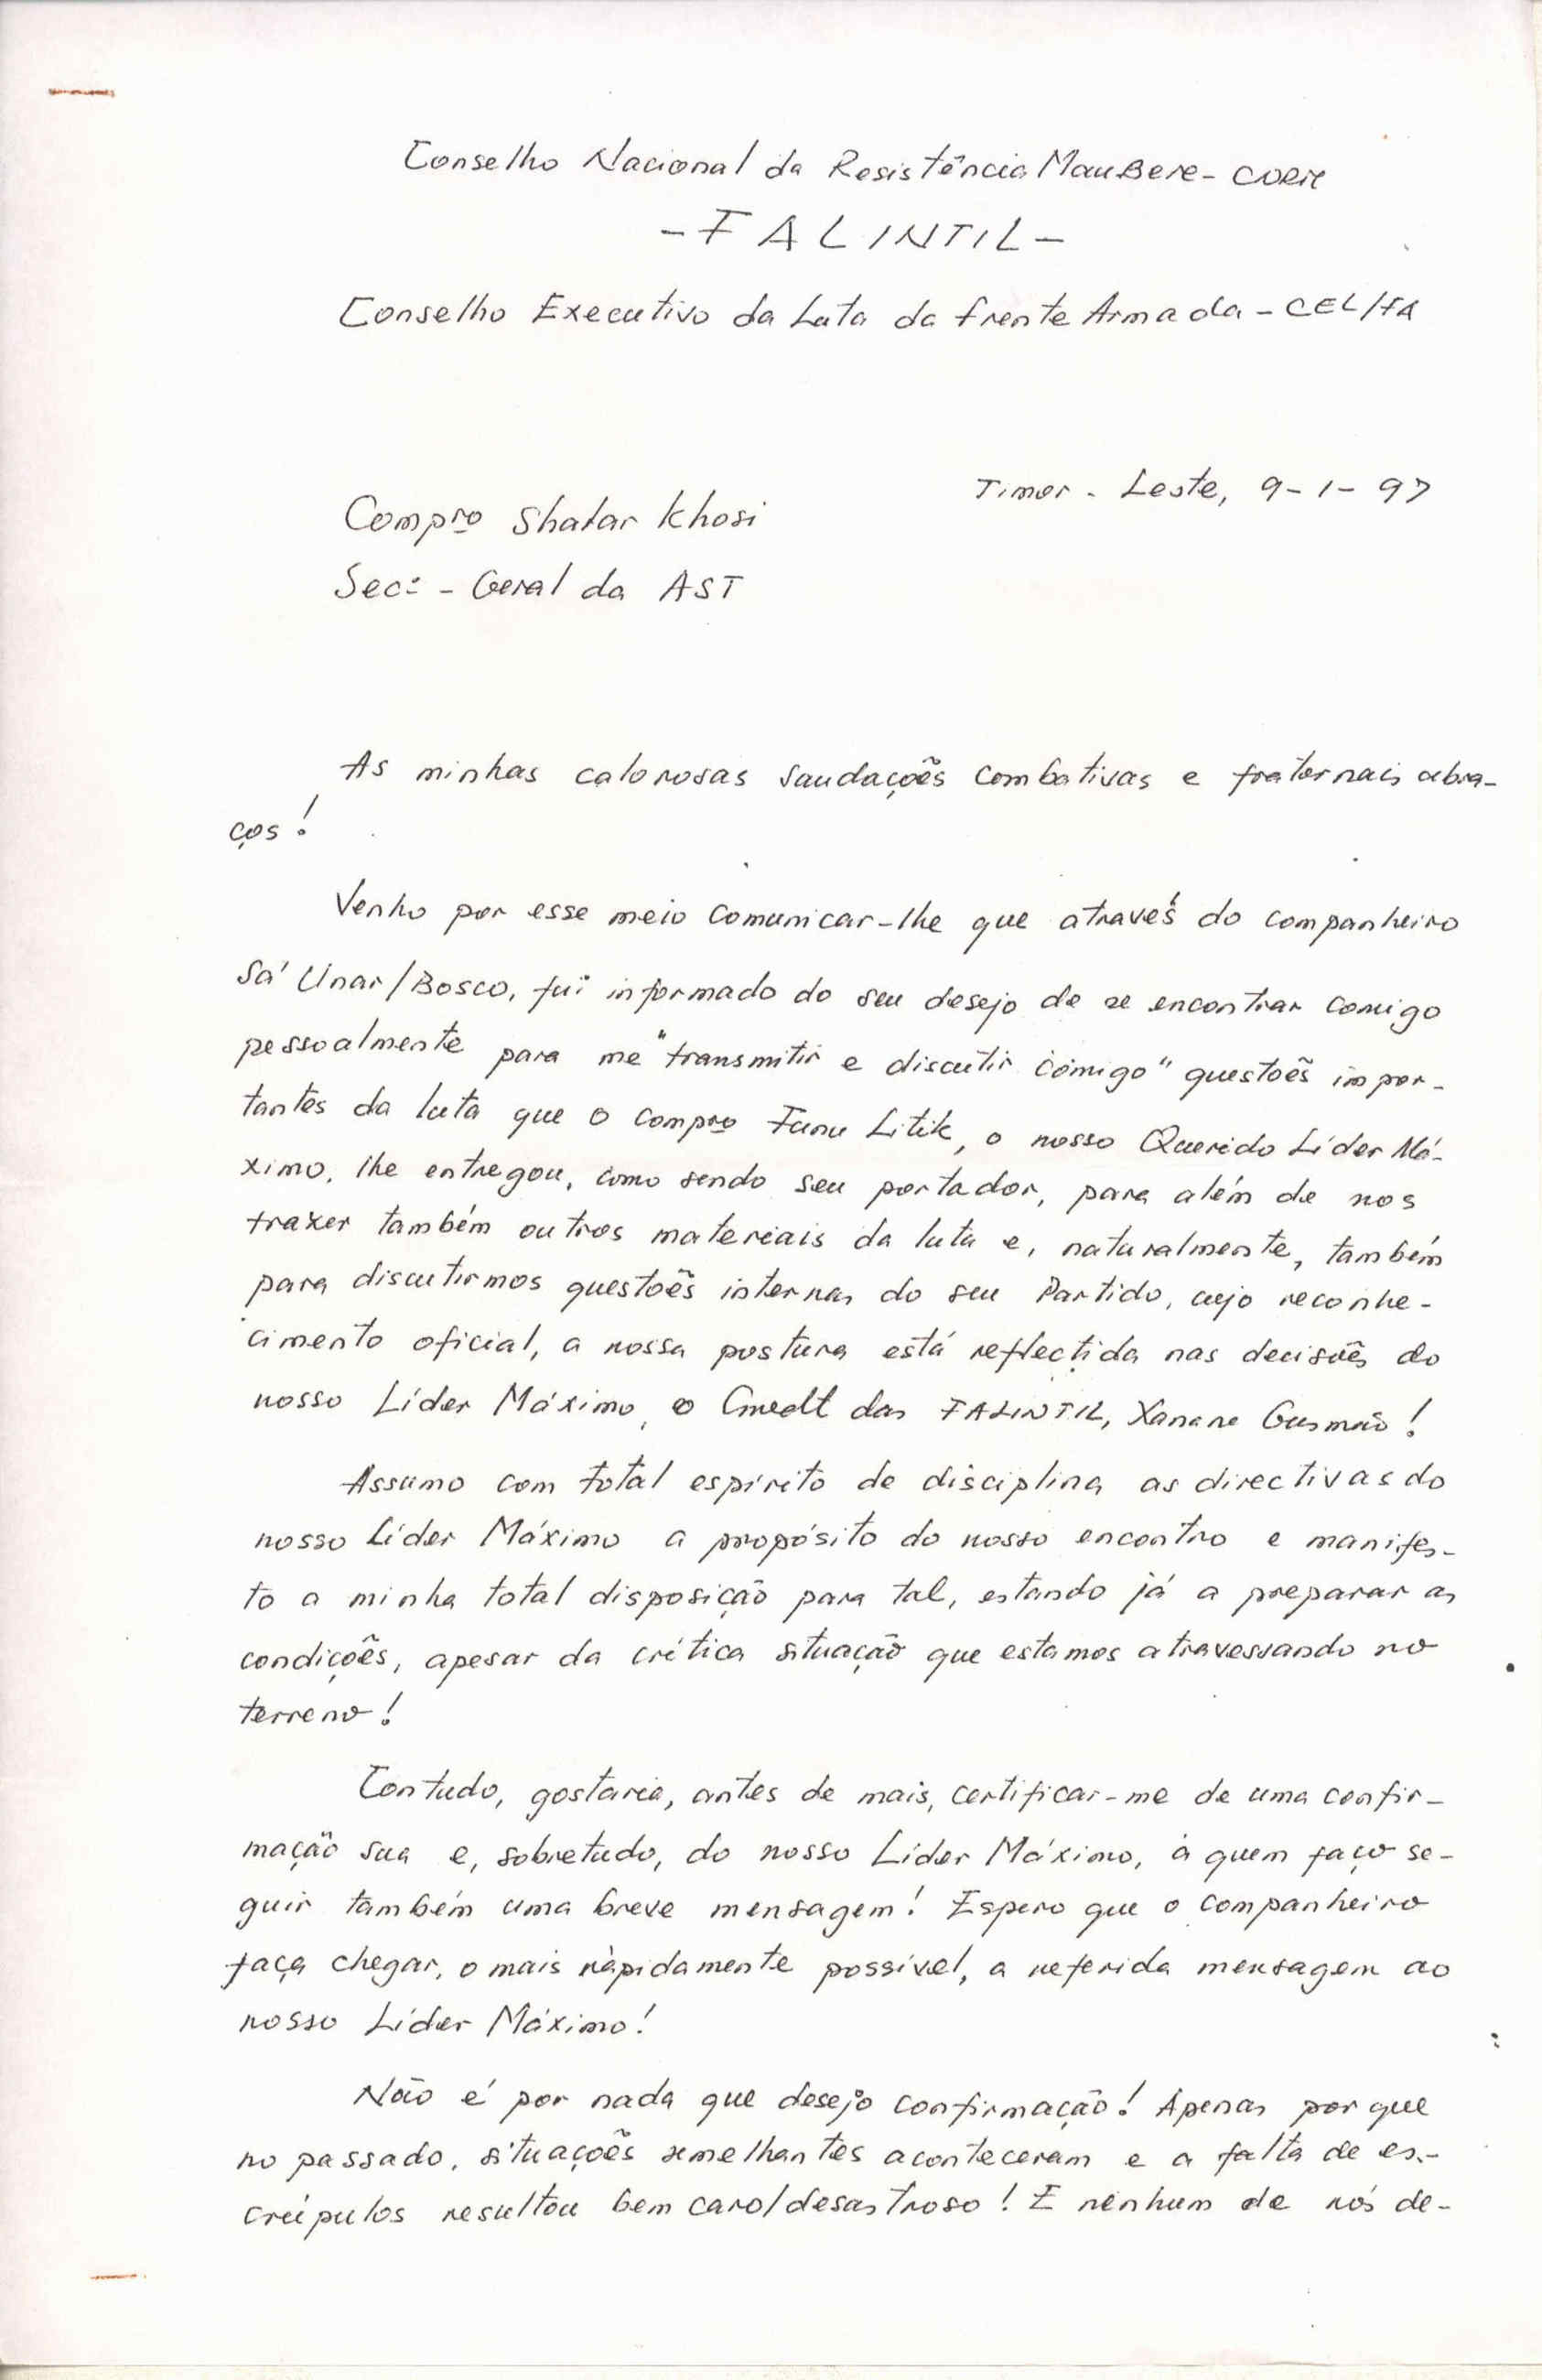 Conselho Nacional da Resistência MauBere - CNRM
- FALINTIL -
Conselho Executivo da Luta da Frente Armada - CEL/FA
Timor - Leste, 9-1-97
Compro Shalar Khosi
Sec: - Geral da AST
As minhas calorosas saudações combativas e fraternais abra-
ços!
Venho por esse meio comunicar-lhe que através do companheiro
Sá Unar/Bosco, fui informado do seu desejo de se encontrar comigo
pessoalmente para me "transmitir e discutir comigo" questões impor-
tantes da luta que o compro Funu Litik, o nosso Querido Líder Má-
ximo, lhe entregou, como sendo seu portador, para além de nos
trazer também outros materiais da luta e, naturalmente, também
para discutirmos questões internas do seu Partido, cujo reconhe-
cimento oficial, a nossa postura está reflectida nas decisões do
nosso Líder Máximo, o Cmdt das FALINTIL, Xanana Gusmão!
Assumo com total espírito de disciplina as directivas do
nosso Líder Máximo a propósito do nosso encontro e manifes-
to a minha total disposição para tal, estando já a preparar as
condições, apesar da crítica situação que estamos atravessando no
terreno!
Contudo, gostaria, antes de mais, certificar-me de uma confir-
mação sua e, sobretudo, do nosso Líder Máximo, à quem faço se-
guir também uma breve mensagem! Espero que o companheiro
faça chegar, o mais ràpidamente possível, a referida mensagem ao
nosso Líder Máximo!
Não é por nada que desejo confirmação! Apenas porque
no passado, situações semelhantes aconteceram e a falta de es-
crúpulos resultou bem caro/desastroso! E nenhum de nós de-